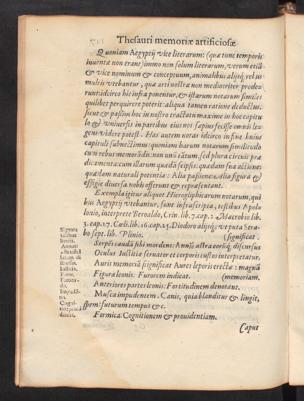 Thesauri memoriæ artificiosæ
Quoniam Aegyptij vice literarum: (quæ tunc temporis
inuentæ non erant) immo non solum literarum, verum etiã
& vice nominum & conceptuum, animalibus alijsq́; rebus
multis vtebantur, quæ arti nostræ non mediocriter prodes-
runt: idcirco hic insista ponentur, & istarum notarum similes
quilibet perquirere poterit: aliqua tamen ratione deductus.
sicut & passim hoc in nostro tractatu maxime in hoc capitu
lo & vniuersis in partibus eius nos fapius fecisse omnis le-
gens videre potest. Hic autem notas idcirco in fine huius
capituli submittimus: quoniam harum notarum similitudo
cum rebus memorãdis: non vni cãtum, sed plura circuit præ
dicamenta: cum istarum quædã scilicet: quædam sua actione:
quædam naturali potentia: Alia passione, alia figura &
effigie diuersa nobis offerunt & repræsentant.
Exempla igitur aliquot Hieroglyphicarum notarum, qui
bus Aegyptij vtebantur, sunt infrascripta, testibus Apol-
lonio, interprete Beroaldo, Crin. lib. 7. cap. 2. Macrobio lib.
3. cap. 17. Cœl. lib. 16. cap. 25. Diodoro alijsq́; vt puta Stra-
bo. sept. lib. Plinio. (significat.
Serpẽs caudã sibi mordens: Annũ: astra eorũq; discursus
Oculus Iustitia seruator et corporis custos interpretatur.
Auris memoriã significat Aures leporis erectæ: magnã
Figura leonis: Furorem indicat. (memoriam.
Anteriores partes leonis: Fortitudinem denotant.
Musca impudentem. Canis, quia blanditur & lingit,
ferm: futurum tempus &c.
Formica: Cognitionem & prouidentiam.
Caput